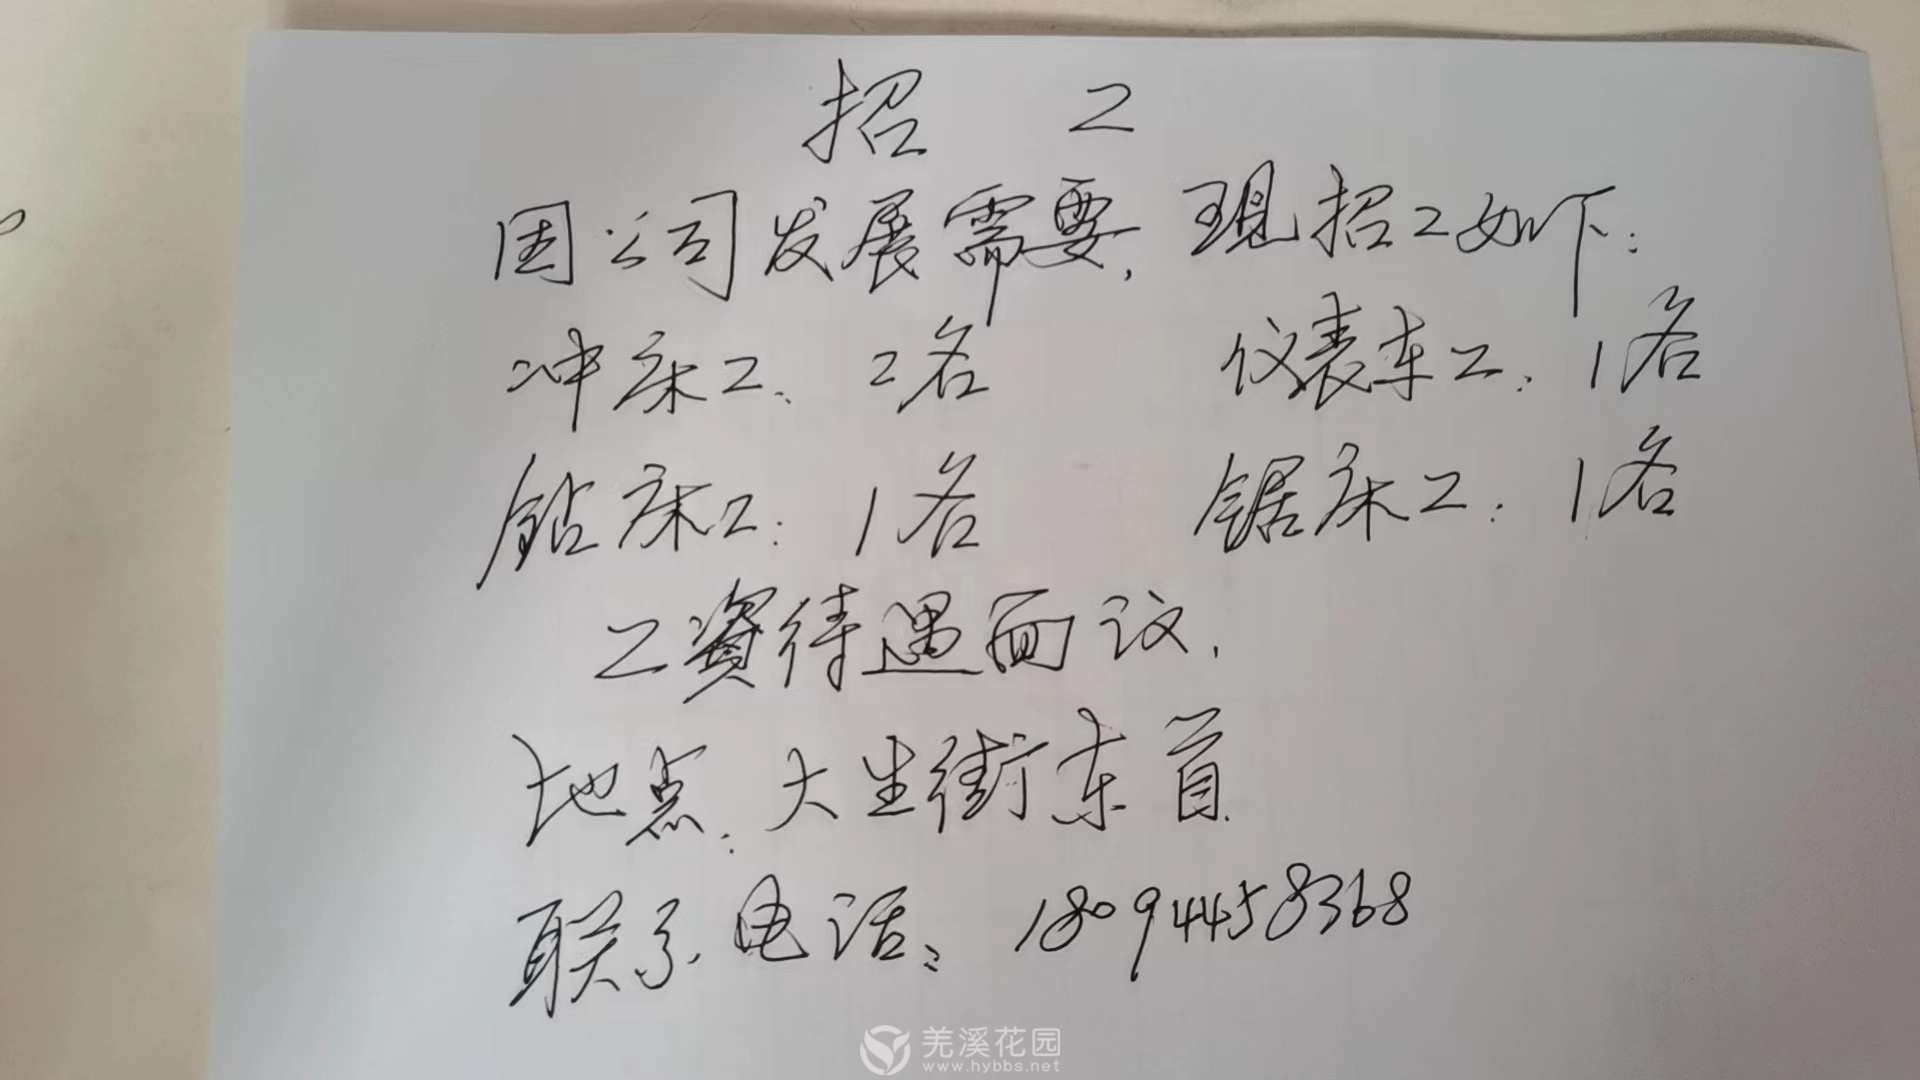 招 工
因公司发展需要,现招工如下:
冲床工: 2名 仪表车工: 1名
钻床工: 1名 锯床工: 1名
工资待遇面议.
地点: 大生街东首
联系电话: 18094458368
羌溪花园
www.hybbs.net